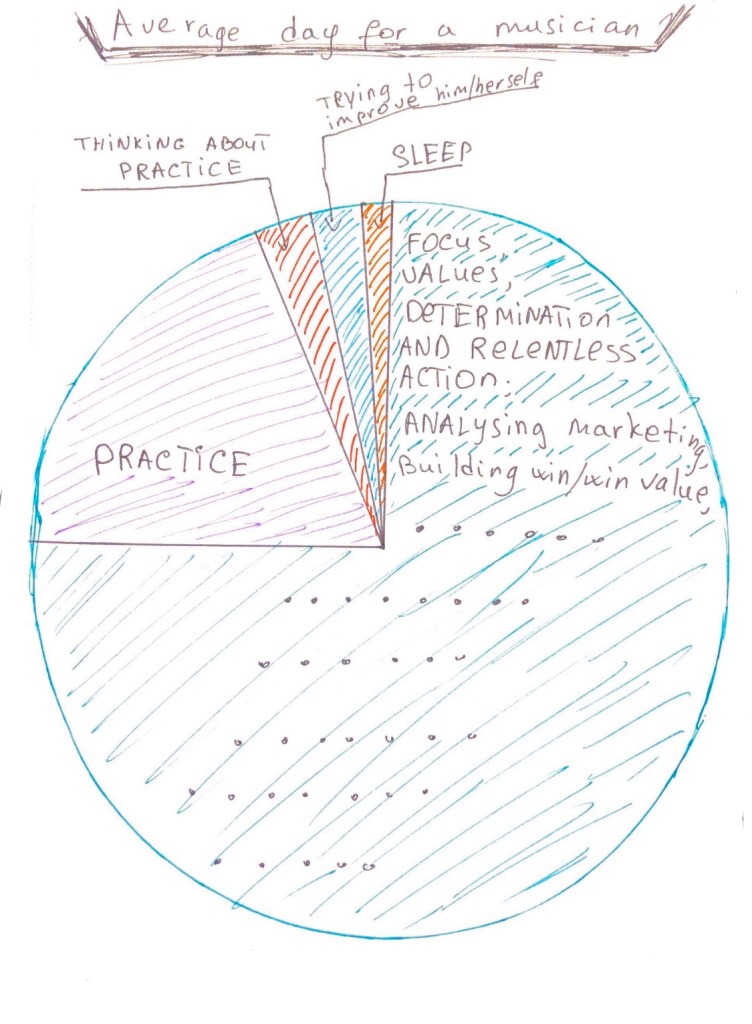 Average day for a musician
Trying to
improve him/herself
THINKING ABOUT
PRACTICE
SLEEP
FOCUS,
VALUES,
DETERMINATION
AND RELENTLESS
ACTION:
ANALYSING marketing,
Building win/win value,
PRACTICE